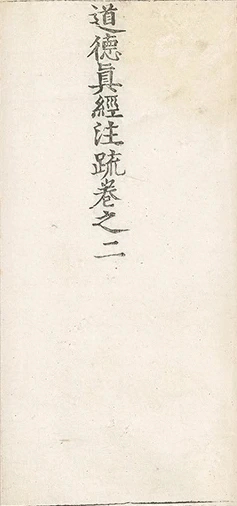 道德眞經注疏卷之二